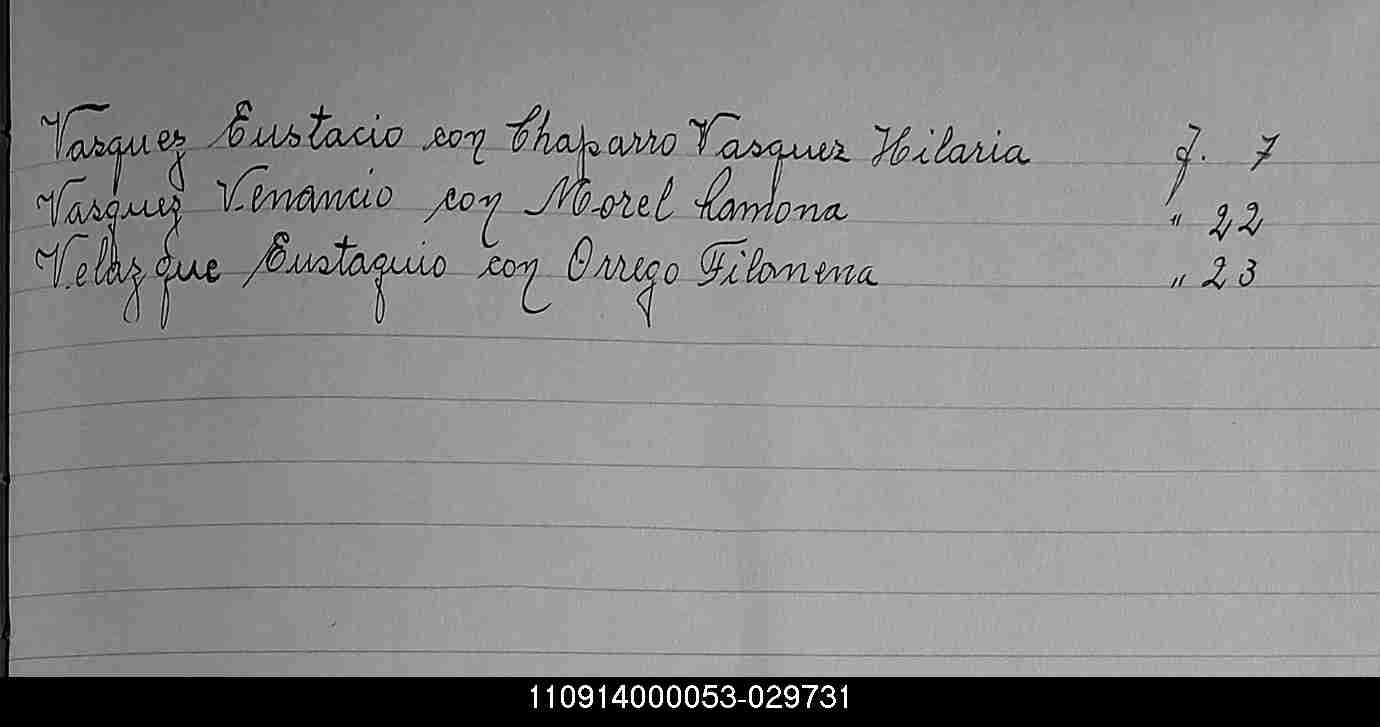 Vasquez Eustacio con Chaparro Vasquez Hilaria f. 7
Vasquez Venancio con Morel Ramona " 22
Velazque Eustaquio con Orrego Filomena " 23
110914000053-029731